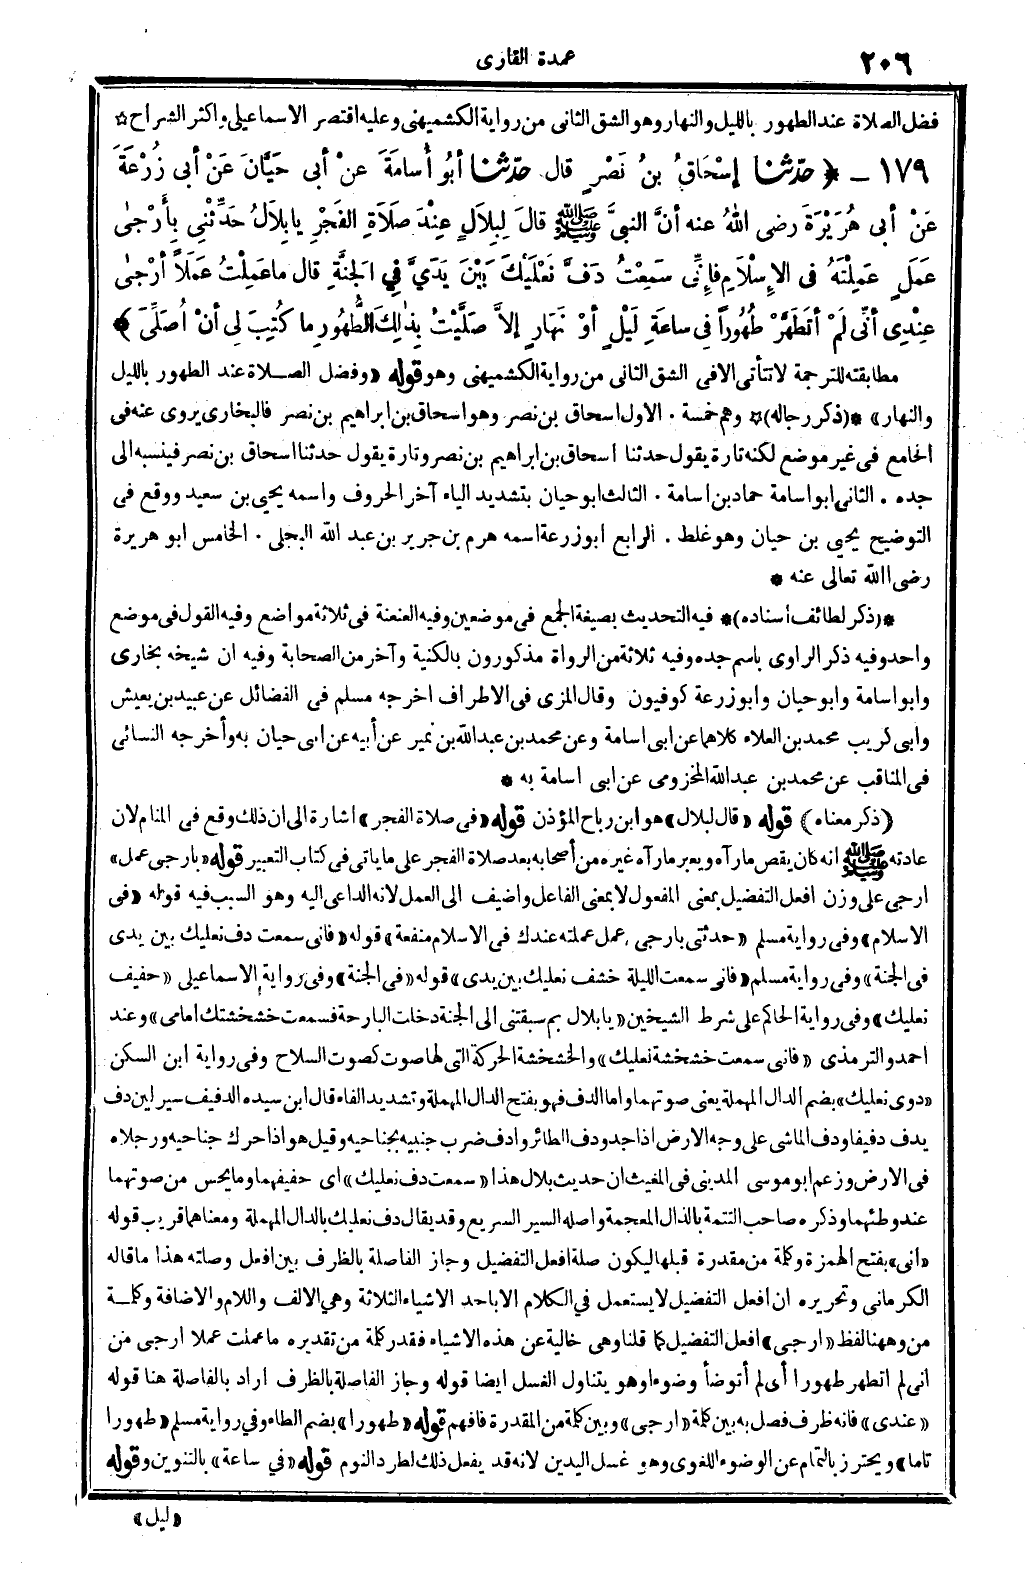 ٢٠٦ عمدة القارى
فضل الصلاة عند الطهور بالليل والنهار وهو الشق الثانى من رواية الكشميهنى وعليه اقتصر الاسماعيلى واكثر الشراح ☆
١٧٩ – ﴿ حَدَّثَنَا إِسْحَاقُ بنُ نَصْرٍ قال حَدَّثَنَا أبُو أُسَامَةَ عنْ أبى حَيَّانَ عَنْ أبى زُرْعَةَ
عَنْ أبى هُرَيْرَةَ رضى اللهُ عنه أنَّ النبيَّ ﷺ قالَ لِبِلَالٍ عِنْدَ صَلَاةِ الفَجْرِ يا بِلَالُ حَدِّثْنِى بِأَرْجٰى
عَمَلٍ عَمِلْتَهُ فى الإِسْلَامِ فإِنِّى سَمِعْتُ دَفَّ نَعْلَيْكَ بَيْنَ يَدَيَّ فِي الجَنَّةِ قال ما عَمِلْتُ عَمَلاً أَرْجٰى
عِنْدِى أنِّى لَمْ أتَطَهَّرْ طُهُوراً فِى ساعَةِ لَيْلٍ أوْ نَهَارٍ إلاَّ صَلَّيْتُ بِذٰلِكَ الطُّهُورِ ما كُتِبَ لِى أنْ أُصَلِّىَ ﴾
مطابقته للترجمة لا تتأتى الا فى الشق الثانى من رواية الكشميهنى وهو قوله «وفضل الصلاة عند الطهور بالليل
والنهار» *(ذكر رجاله)☆ وهم خمسة . الاول اسحاق بن نصر وهو اسحاق بن ابراهيم بن نصر فالبخارى يروى عنه فى
الجامع فى غير موضع لكنه تارة يقول حدثنا اسحاق بن ابراهيم بن نصر وتارة يقول حدثنا اسحاق بن نصر فينسبه الى
جده . الثانى ابو اسامة حماد بن اسامة . الثالث ابو حيان بتشديد الياء آخر الحروف واسمه يحيى بن سعيد ووقع فى
التوضيح يحيى بن حيان وهو غلط . الرابع ابو زرعة اسمه هرم بن جرير بن عبد الله البجلى . الخامس ابو هريرة
رضى الله تعالى عنه *
*(ذكر لطائف أسناده)* فيه التحديث بصيغة الجمع فى موضعين وفيه العنعنة فى ثلاثة مواضع وفيه القول فى موضع
واحد وفيه ذكر الراوى باسم جده وفيه ثلاثة من الرواة مذكورون بالكنية وآخر من الصحابة وفيه ان شيخه بخارى
وابو اسامة وابو حيان وابو زرعة كوفيون وقال المزى فى الاطراف اخرجه مسلم فى الفضائل عن عبيد بن يعيش
وابى كريب محمد بن العلاء كلاهما عن ابى اسامة وعن محمد بن عبد الله بن نمير عن أبيه عن ابى حيان به وأخرجه النسائى
فى المناقب عن محمد بن عبد الله المخزومى عن ابى اسامة به *
(ذكر معناه) قوله «قال لبلال» هو ابن رباح المؤذن قوله «فى صلاة الفجر» اشارة الى ان ذلك وقع فى المنام لان
عادته ﷺ انه كان يقص ما رآه ويعبر ما رآه غيره من أصحابه بعد صلاة الفجر على ما ياتى فى كتاب التعبير قوله «بارجى عمل»
ارجى على وزن افعل التفضيل بمعنى المفعول لا بمعنى الفاعل واضيف الى العمل لانه الداعى اليه وهو السبب فيه قوله «فى
الاسلام» وفى رواية مسلم «حدثنى بارجى عمل عملته عندك فى الاسلام منفعة» قوله «فانى سمعت دف نعليك بين يدى
فى الجنة» وفى رواية مسلم «فانى سمعت الليلة خشف نعليك بين يدى» قوله «فى الجنة» وفى رواية الاسماعيلى «حفيف
نعليك» وفى رواية الحاكم على شرط الشيخين «يا بلال بم سبقتنى الى الجنة دخلت البارحة فسمعت خشخشتك امامى» وعند
احمد والترمذى «فانى سمعت خشخشة نعليك» والخشخشة الحركة التى لها صوت كصوت السلاح وفى رواية ابن السكن
«دوى نعليك» بضم الدال المهملة يعنى صوتهما واما الدف فهو بفتح الدال المهملة وتشديد الفاء قال ابن سيده الدفيف سير لين دف
يدف دفيفا ودف الماشى على وجه الارض اذا جد ودف الطائر وادف ضرب جنبيه بجناحيه وقيل هو اذا حرك جناحيه ورجلاه
فى الارض وزعم ابو موسى المدينى فى المغيث ان حديث بلال هذا «سمعت دف نعليك» اى حفيفهما وما يحس من صوتهما
عند وطئهما وذكره صاحب التتمة بالذال المعجمة واصله السير السريع وقد يقال دف نعليك بالدال المهملة ومعناهما قريب قوله
«أنى» بفتح الهمزة وكلة من مقدرة قبلها ليكون صلة افعل التفضيل وجاز الفاصلة بالظرف بين افعل وصلته هذا ما قاله
الكرمانى وتحريره ان افعل التفضيل لا يستعمل فى الكلام الا باحد الاشياء الثلاثة وهى الالف واللام والاضافة وكلمة
من وههنا لفظ «ارجى» افعل التفضيل كما قلنا وهى خالية عن هذه الاشياء فقدر كلمة من تقديره ما عملت عملا ارجى من
انى لم اتطهر طهورا أى لم أتوضأ وضوءا وهو يتناول الغسل ايضا قوله وجاز الفاصلة بالظرف اراد بالفاصلة هنا قوله
«عندى» فانه ظرف فصل به بين كلمة «ارجى» وبين كلمة من المقدرة فافهم قوله «طهورا» بضم الطاء وفى رواية مسلم «طهورا
تاما» ويحترز بالتمام عن الوضوء اللغوى وهو غسل اليدين لانه قد يفعل ذلك لطرد النوم قوله «فى ساعة» بالتنوين وقوله
«ليل»